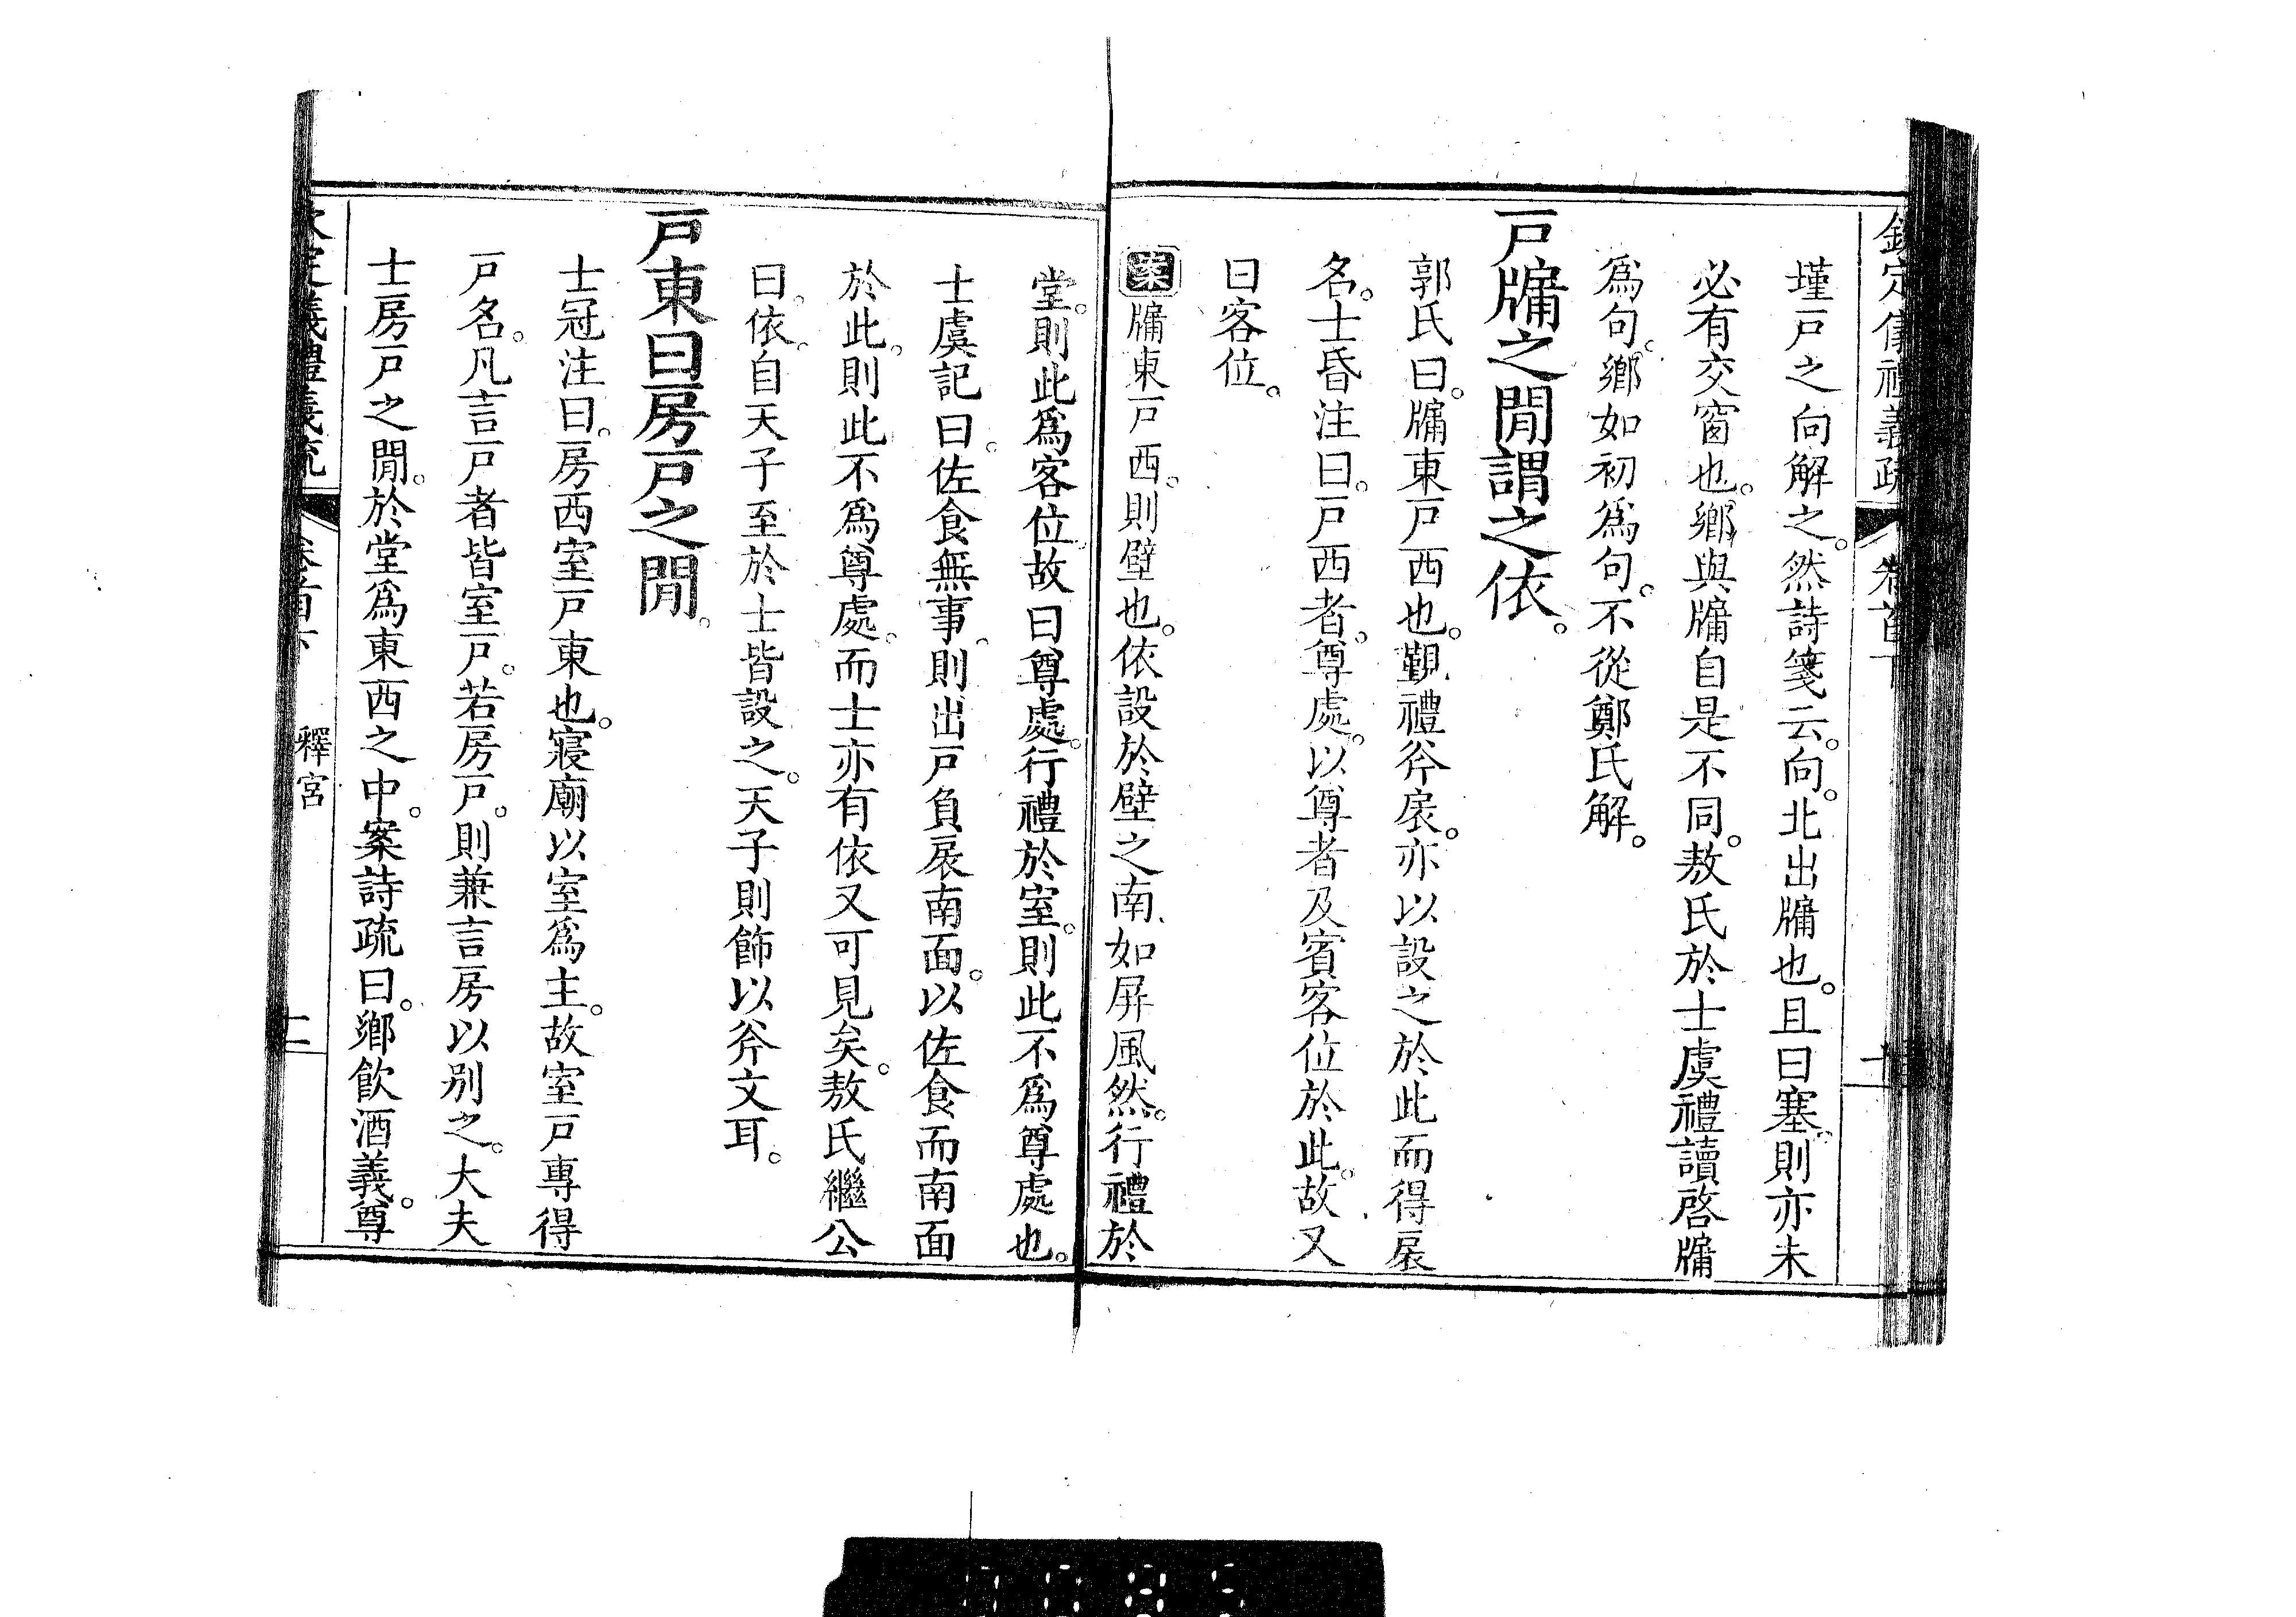 欽定儀禮義疏 卷首下
墐戸之向解之。然詩箋云。向。北出牖也。且曰塞。則亦未
必有交窗也。鄉與牖自是不同。敖氏於士虞禮讀啓牖
爲句。鄉如初爲句。不從鄭氏解。
戸牖之閒謂之依。
郭氏曰。牖東戸西也。覲禮斧扆。亦以設之於此而得扆
名。士昏注曰。戸西者。尊處。以尊者及賓客位於此。故又
曰客位。
案牖東戸西。則壁也。依設於壁之南、如屏風然。行禮於
堂。則此爲客位。故曰尊處。行禮於室。則此不爲尊處也。
士虞記曰。佐食無事。則出戸負扆南面。以佐食而南面
於此。則此不爲尊處。而士亦有依又可見矣。敖氏繼公
曰。依。自天子至於士皆設之。天子則飾以斧文耳。
戸東曰房戸之閒。
士冠注曰。房西室戸東也。寢廟以室爲主。故室戸專得
戸名。凡言戸者皆室戸。若房戸。則兼言房以别之。大夫
士房戸之閒。於堂爲東西之中。案詩疏曰。鄉飲酒義。尊
欽定儀禮義疏 卷首下 釋宮